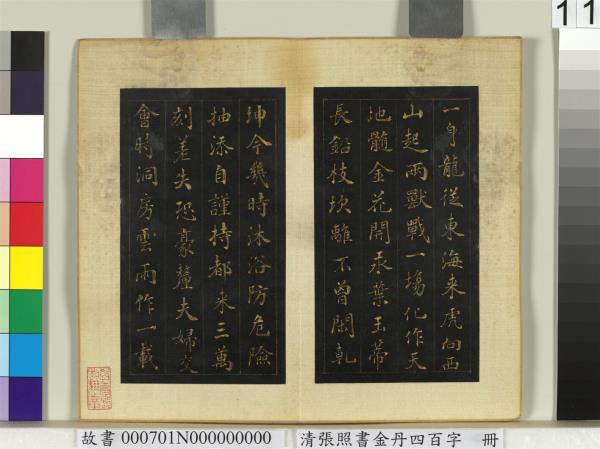 一身龍從東海来虎向西
山起兩獸戰一場化作天
地髓金花開汞葉玉蒂
長鉛枝坎離不曾閑乾
坤今幾時沐浴防危險
抽添自謹持都来三萬
刻差失恐豪釐夫婦交
會時洞房雲雨作一載
故書 000701N000000000
清張照書金丹四百字 冊
11